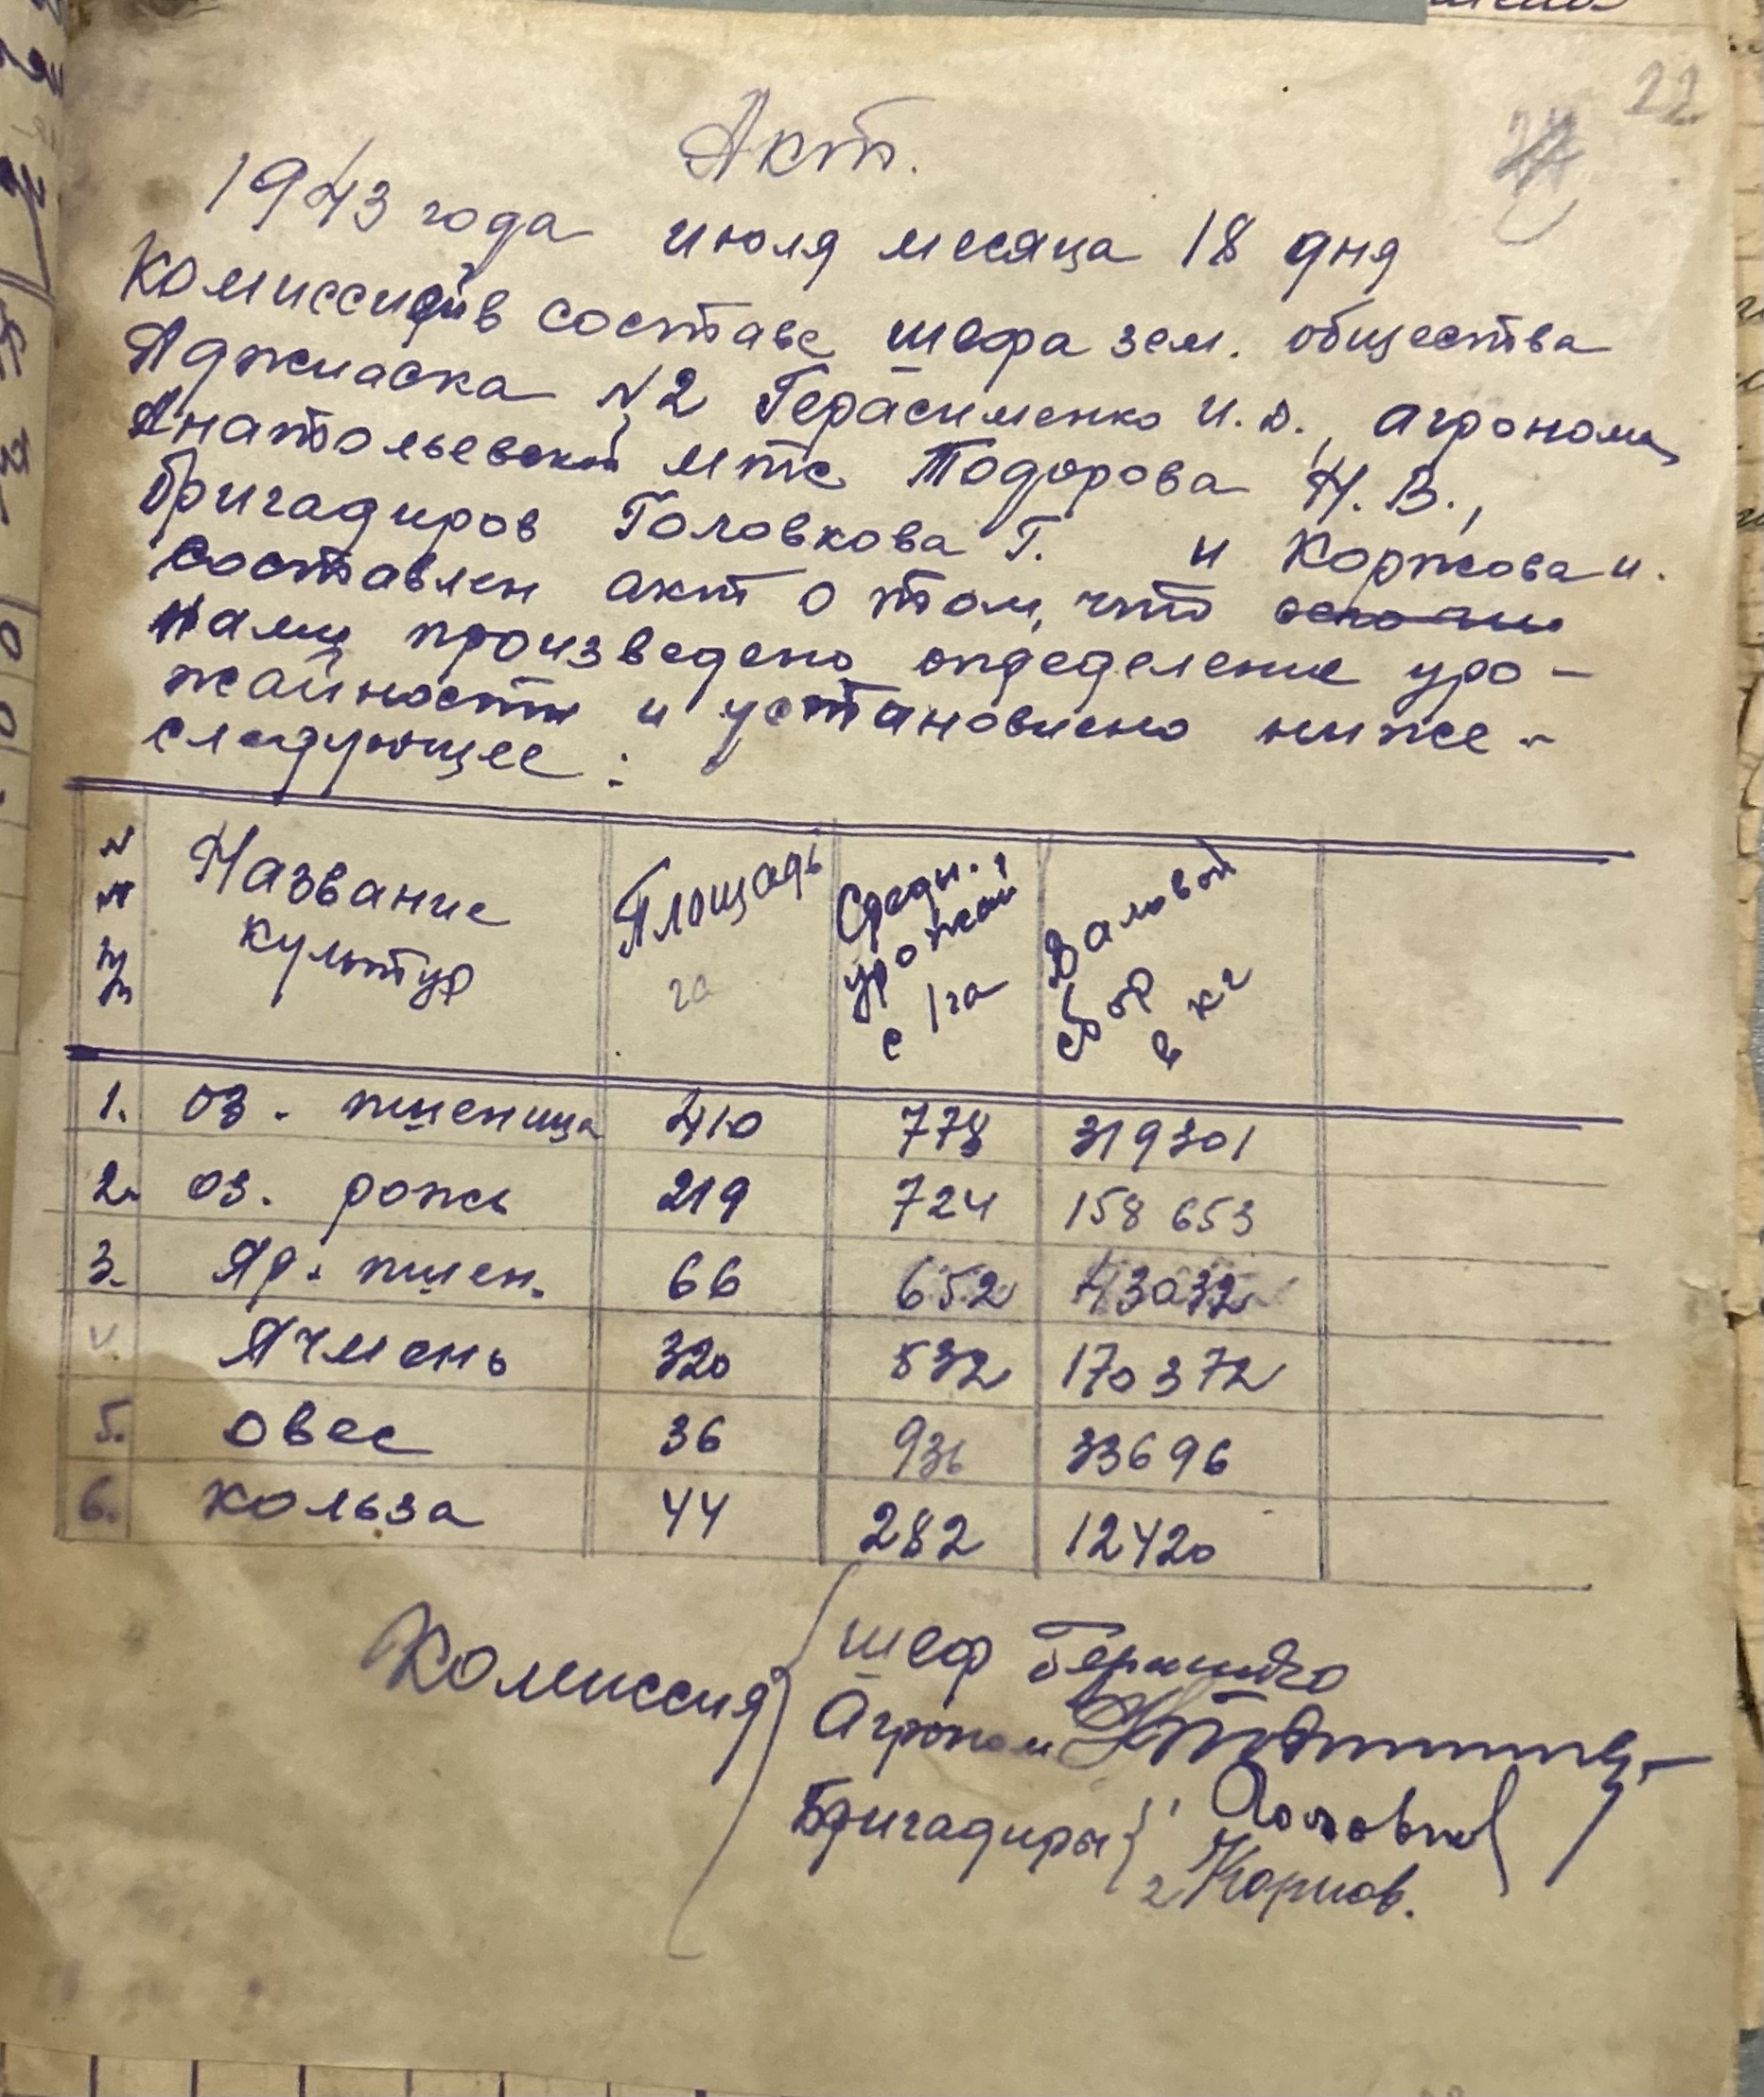 22
Акт.
1943 года июля месяца 18 дня
Комиссией в составе шефа зем. общества
Аджиаска №2 Герасименко И.D., агронома
Анатольевской мтс Тодорова Н.В.,
бригадиров Головкова Г. и Коржова И.
составлен акт о том, что
нами произведено определение уро-
жайности и установлено ниже-
следующее:
№ № п/п Название культур Площадь га Средн. урожай с 1 га Валовой сбор в кг
1. оз. пшеница 410 778 319301
2. оз. рожь 219 724 158 653
3. Яр. пшен. 66 652 43032
4. Ячмень 320 532 170372
5. овес 36 936 33696
6. кольза 44 282 12420
Комиссия
шеф
Агроном
Бригадиры 1 Головков
2 Коржов.